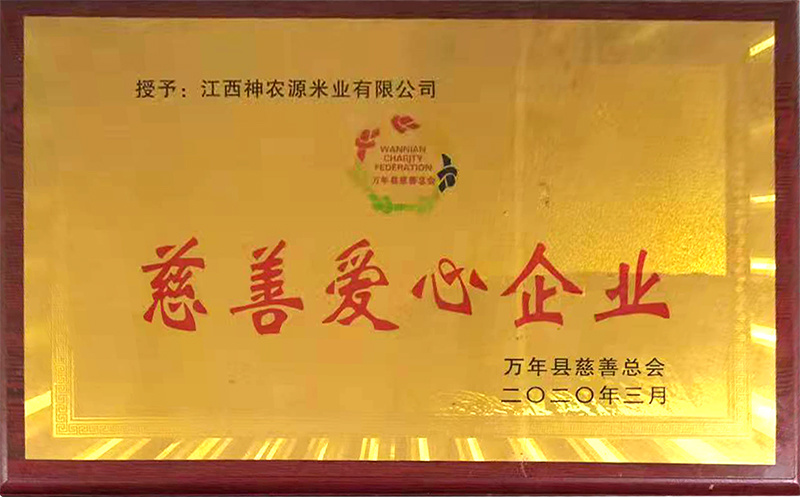 授予：江西神农源米业有限公司
WANNIAN
CHARITY
FEDERATION
万年县慈善总会
慈善爱心企业
万年县慈善总会
二〇二〇年三月